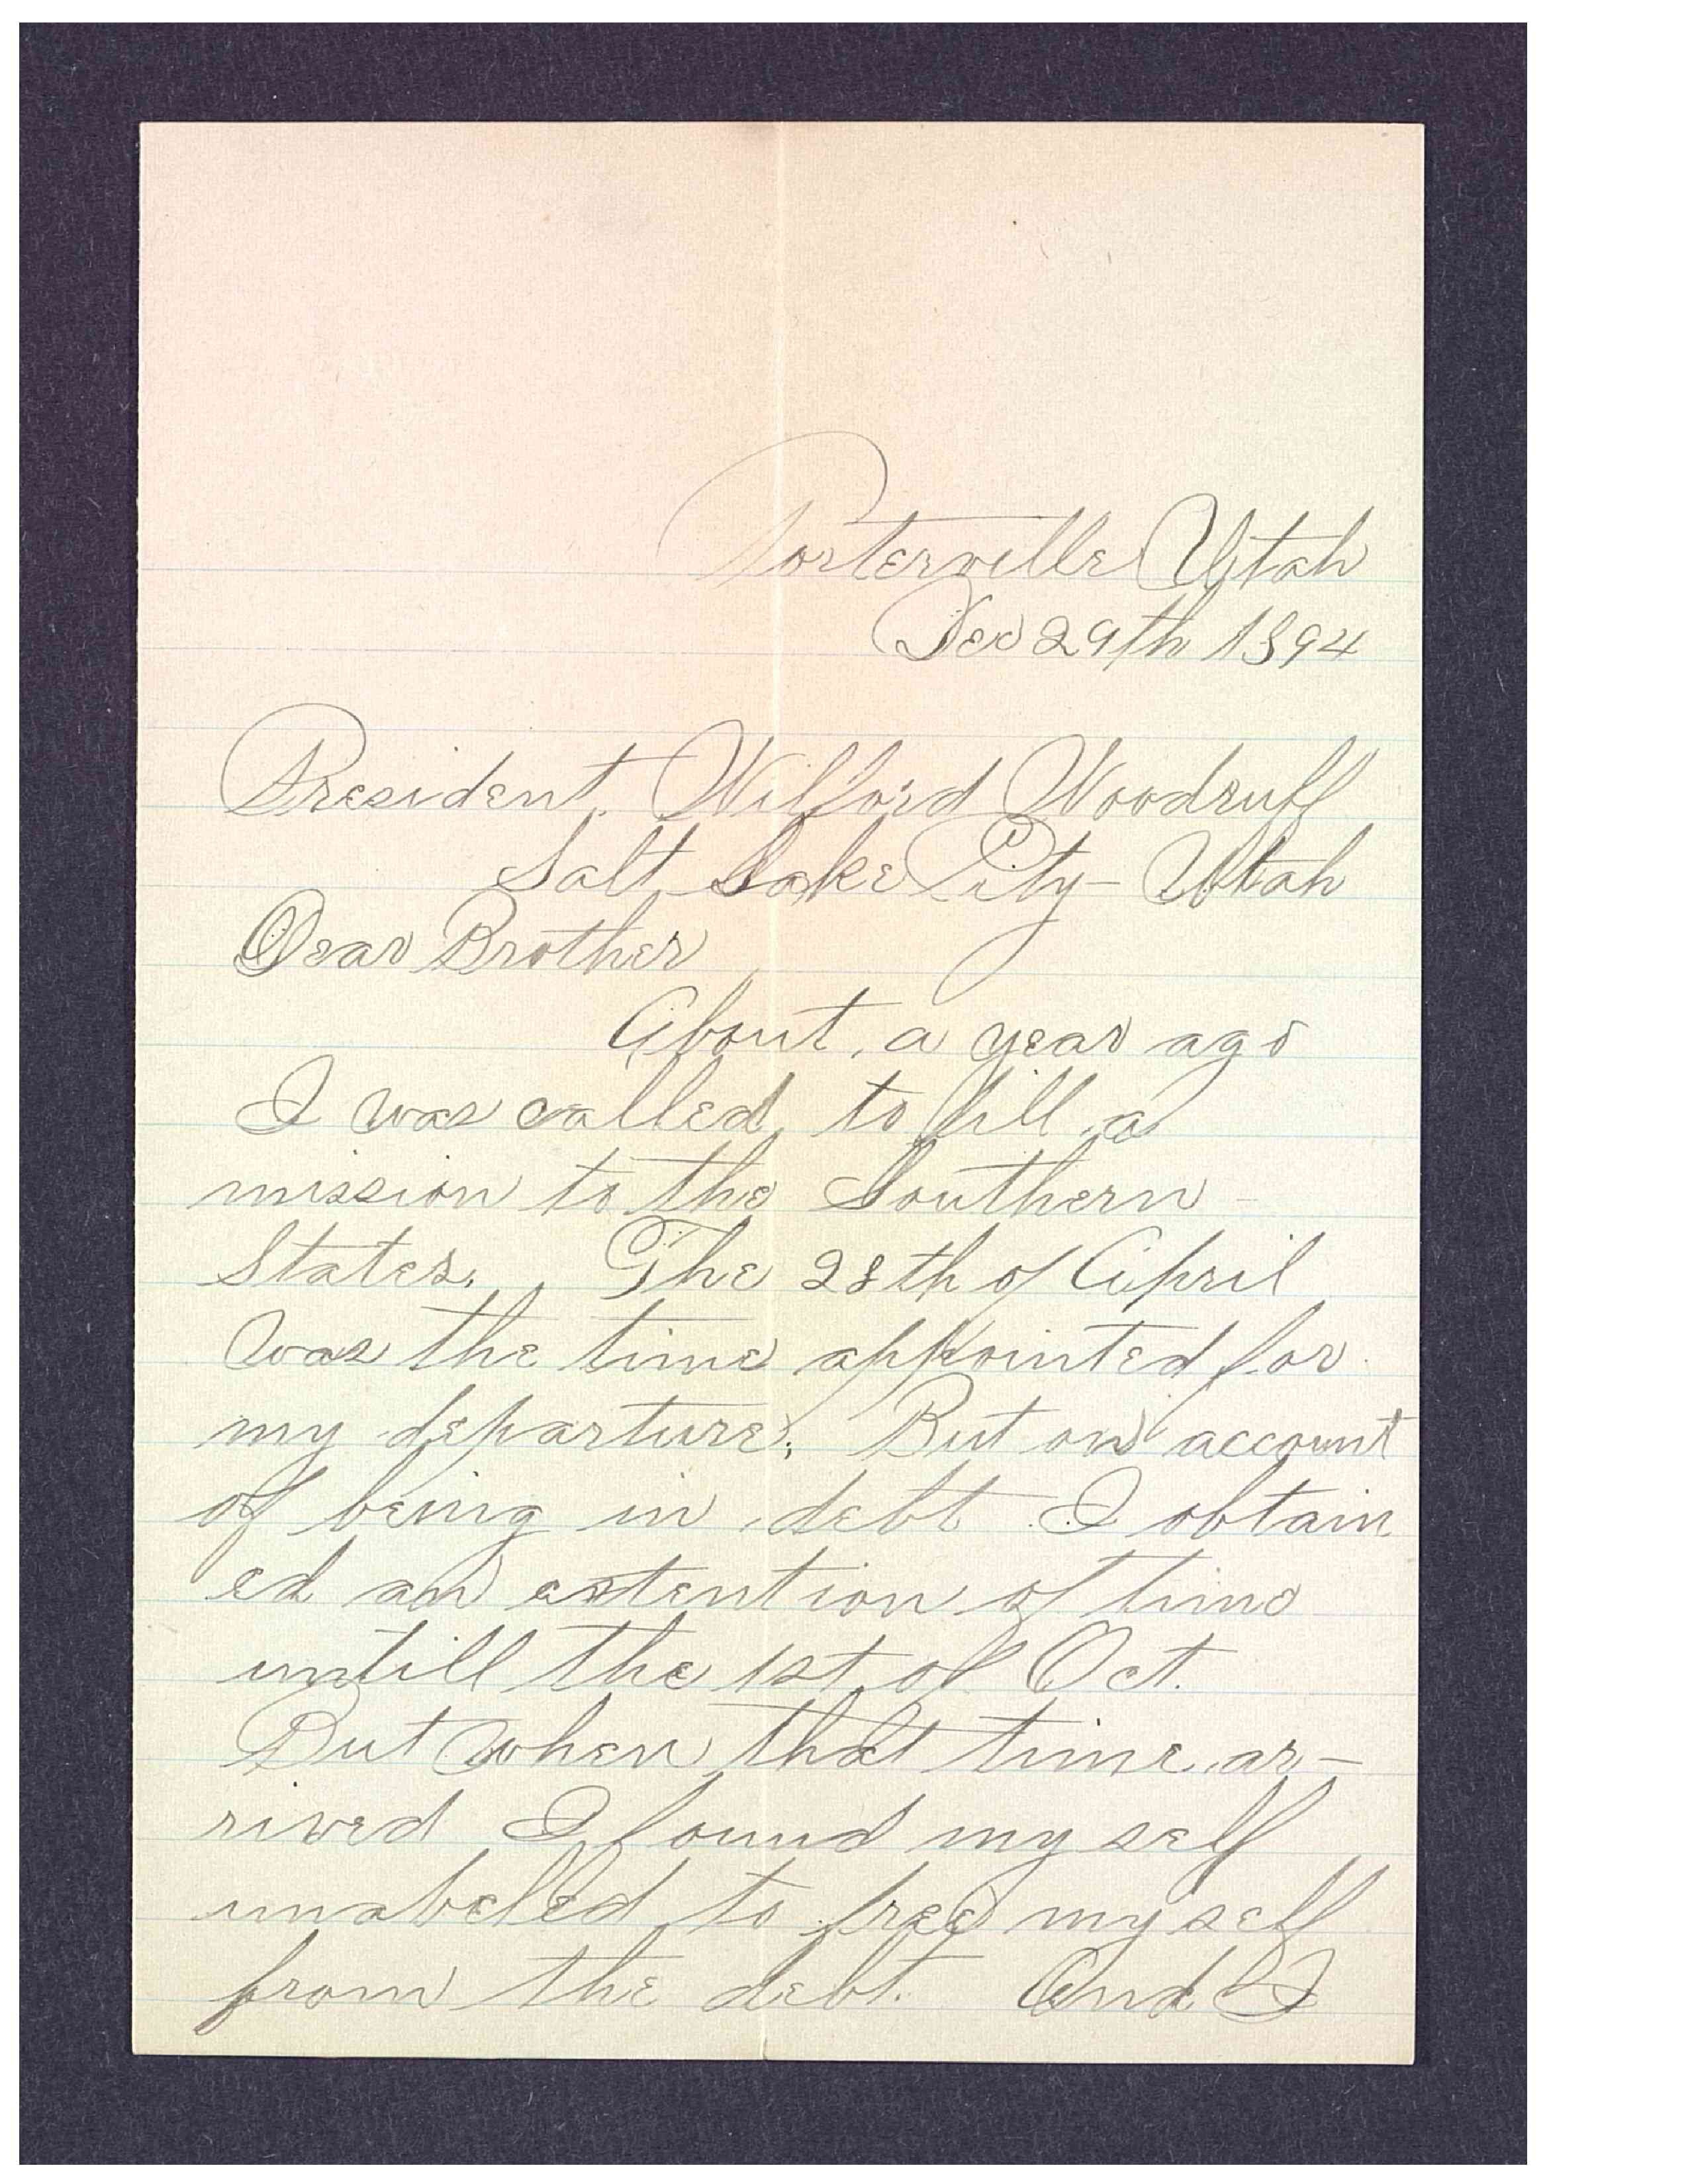 Porterville Utah
Dec 29th 1894
President, Wilford Woodruff
Salt Lake City - Utah
Dear Brother
About, a year ago
I was called to fill a
mission to the Southern -
States. The 28th of April
was the time appointed for
my departure; But on account
of being in debt I obtain
ed an extention of time
untill the 1st of Oct.
But when that time ar-
rived I found my self
unabeled to free my self
from the debt. And I